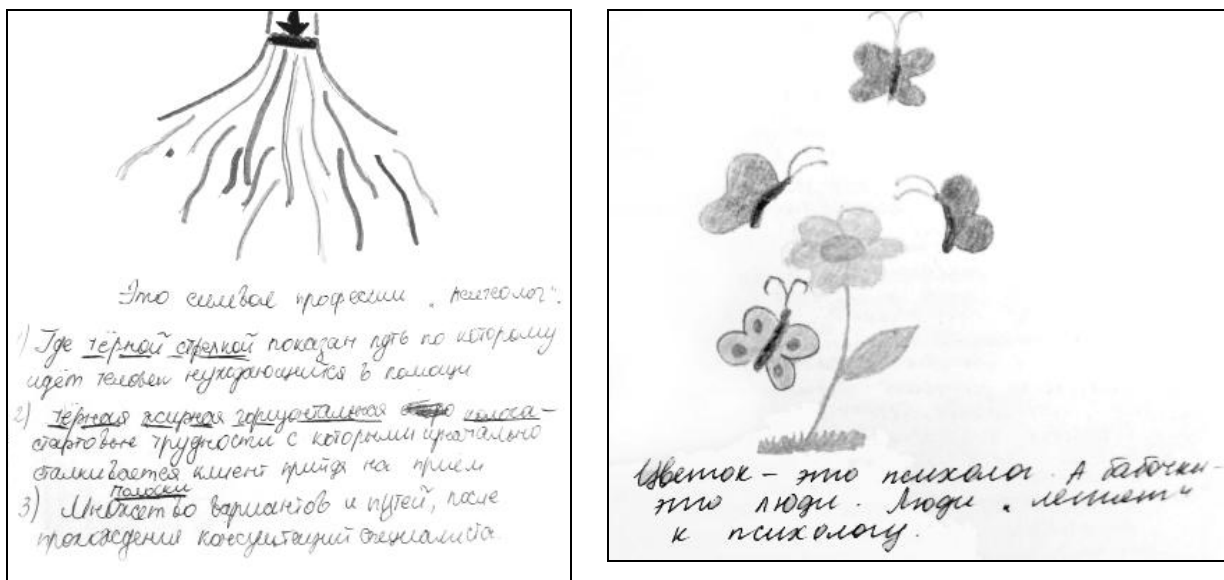 Это символ профессии „психолог".
1) Где чёрной стрелкой показан путь по которому
идёт человек нуждающийся в помощи
2) чёрная жирная горизонтальная полоса –
стартовые трудности с которыми изначально
сталкивается клиент прийдя на прием
полоски
3) Множество вариантов и путей, после
прохождения консультаций специалиста.
Цветок – это психолог. А бабочки –
это люди. Люди „летят"
к психологу.